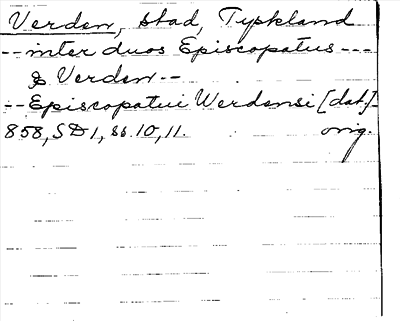 Verden, stad, Tyskland
-- inter duos Episcopatus ---
& Verden --
-- Episcopatui Werdensi [dat.]
858, SD1, ss. 10, 11. orig.